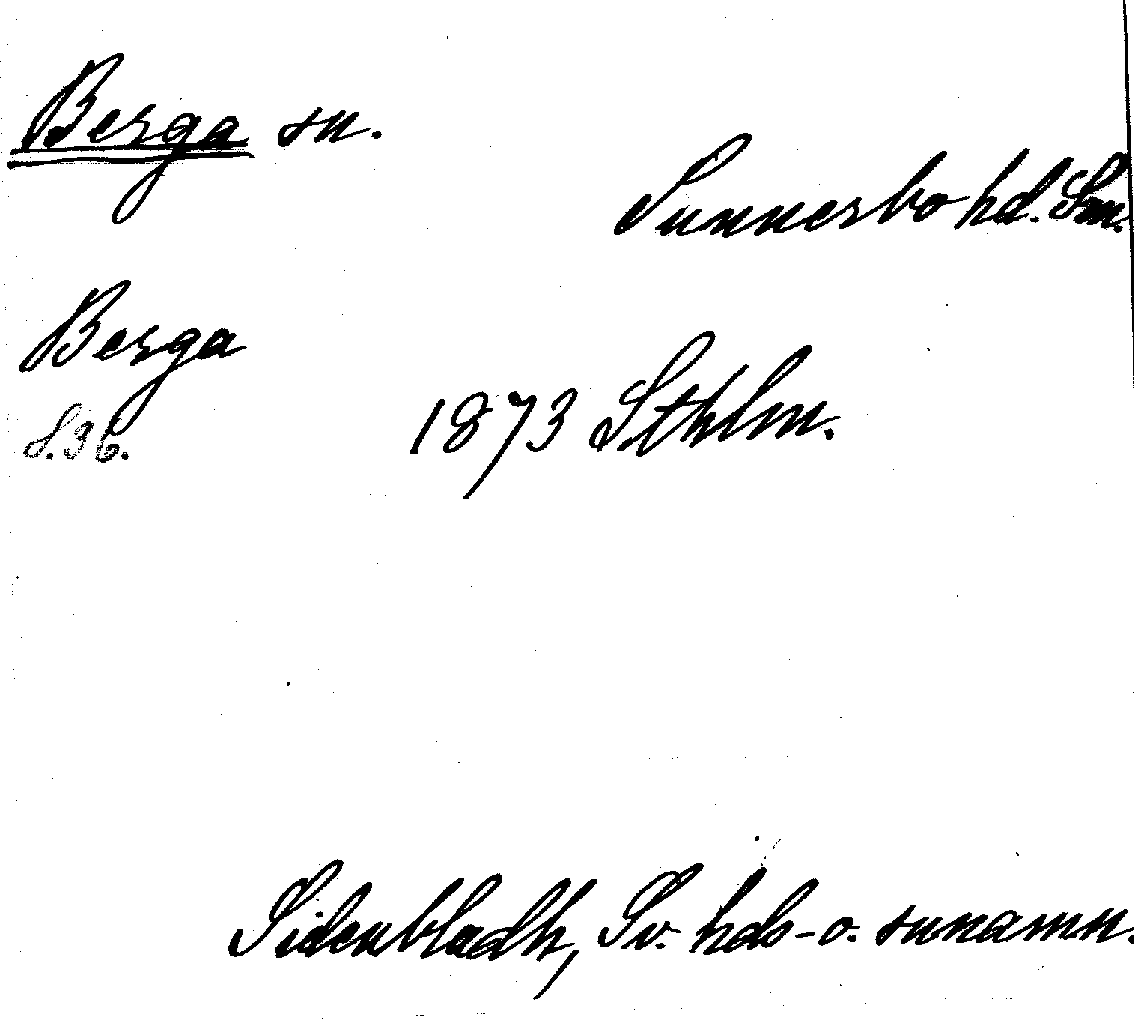 Berga sn.
Sunnerbo hd. Sm.
Berga
S. 36.
1873 Sthlm.
Sidenbladh, Sv. hds- o. sunamn.